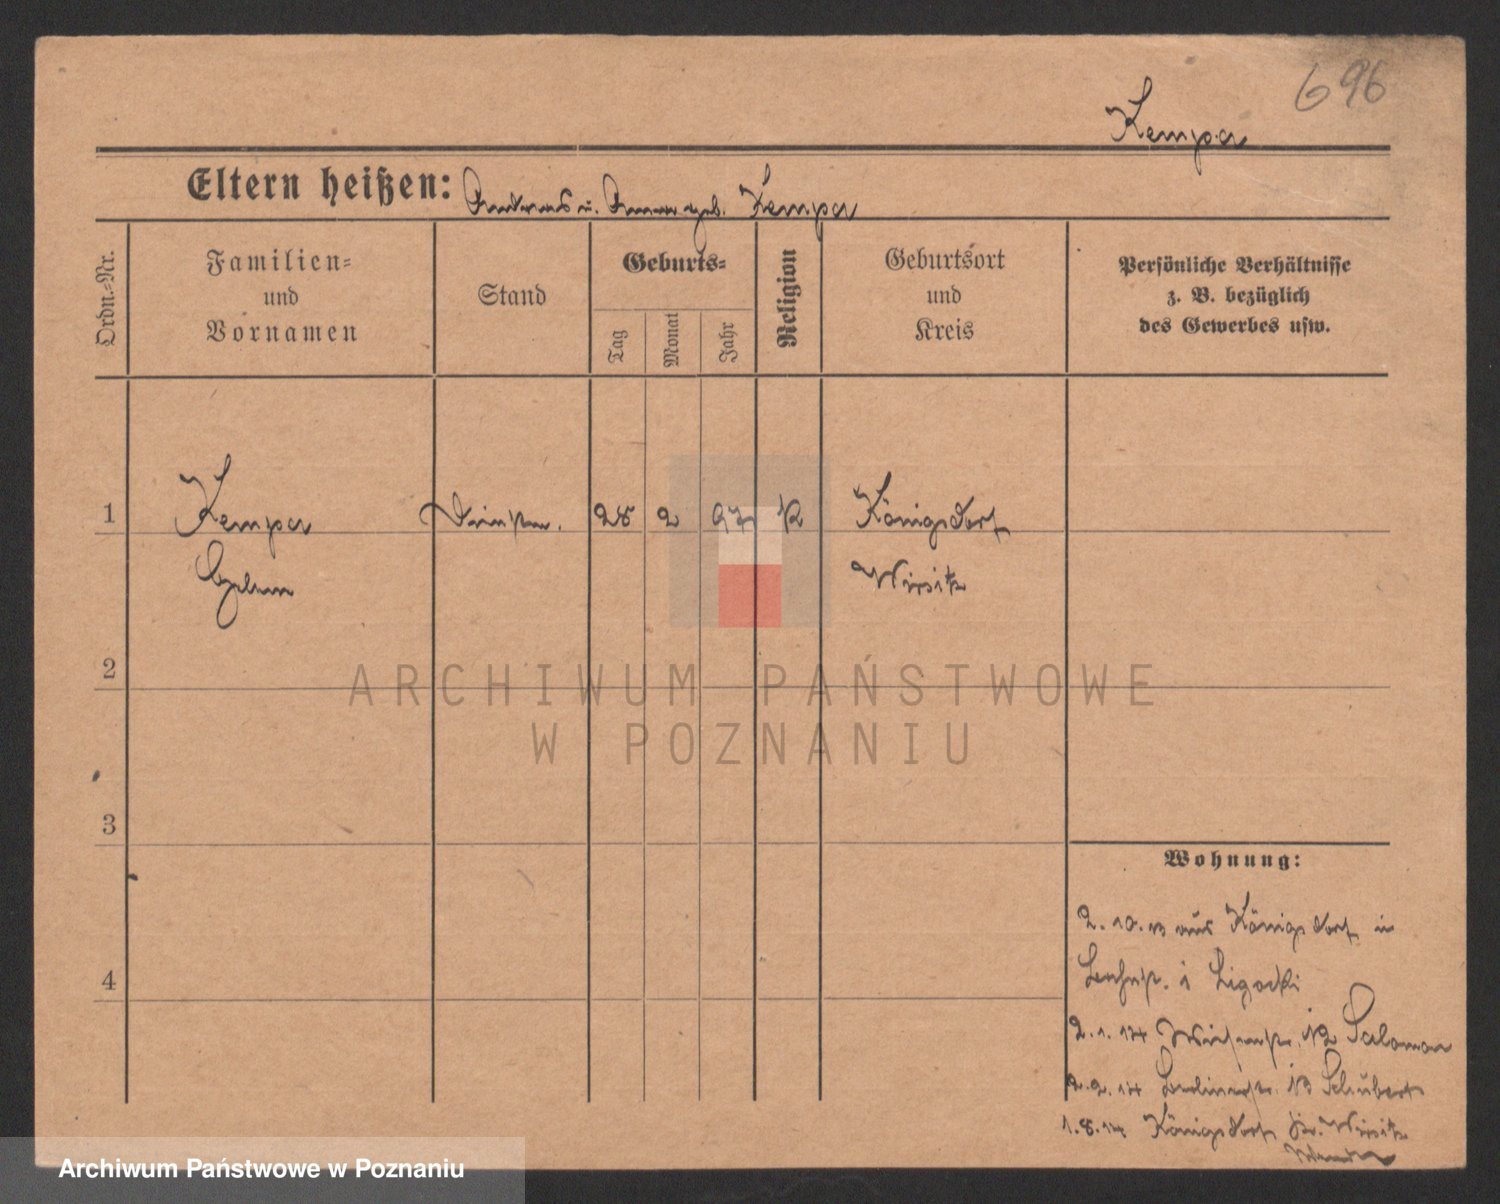 696
Kempa
Eltern heißen: Andreas u. Anna geb. Kempa
Ordn.-Nr.
Familien-
und
Vornamen
Stand
Geburts-
Tag
Monat
Jahr
Religion
Geburtsort
und
Kreis
Persönliche Verhältnisse
z. B. bezüglich
des Gewerbes usw.
1 Kempa 28 2 97 K Königsdorf
Wirsitz
2
ARCHIWUM PAŃSTWOWE
W POZNANIU
3
Wohnung:
2.10.13 aus Königsdorf in
4
1 Ligocki
2.1.14 12 Salomon
2.2.14 Berlinerstr. 13 Schubert
1.8.14 Königsdorf Kr. Wirsitz
Archiwum Państwowe w Poznaniu